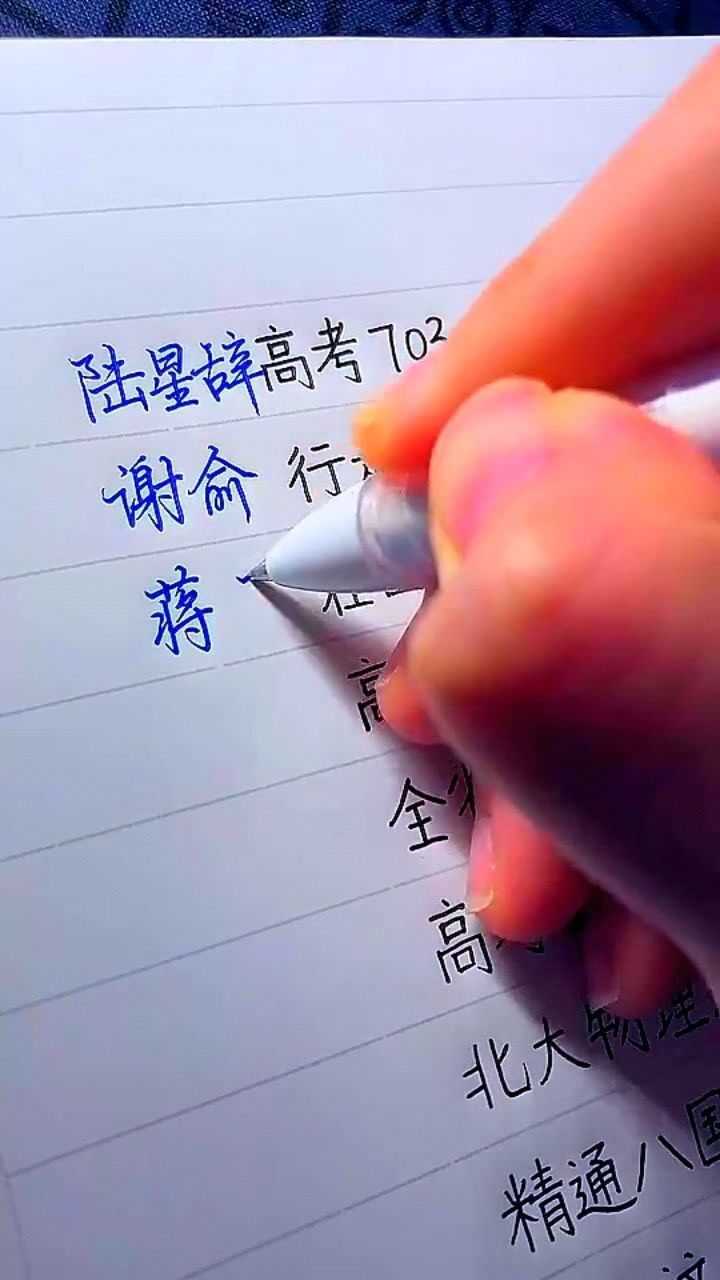 陆星辞高考702
谢俞 行
蒋
高
全
高考
北大物理
精通八国